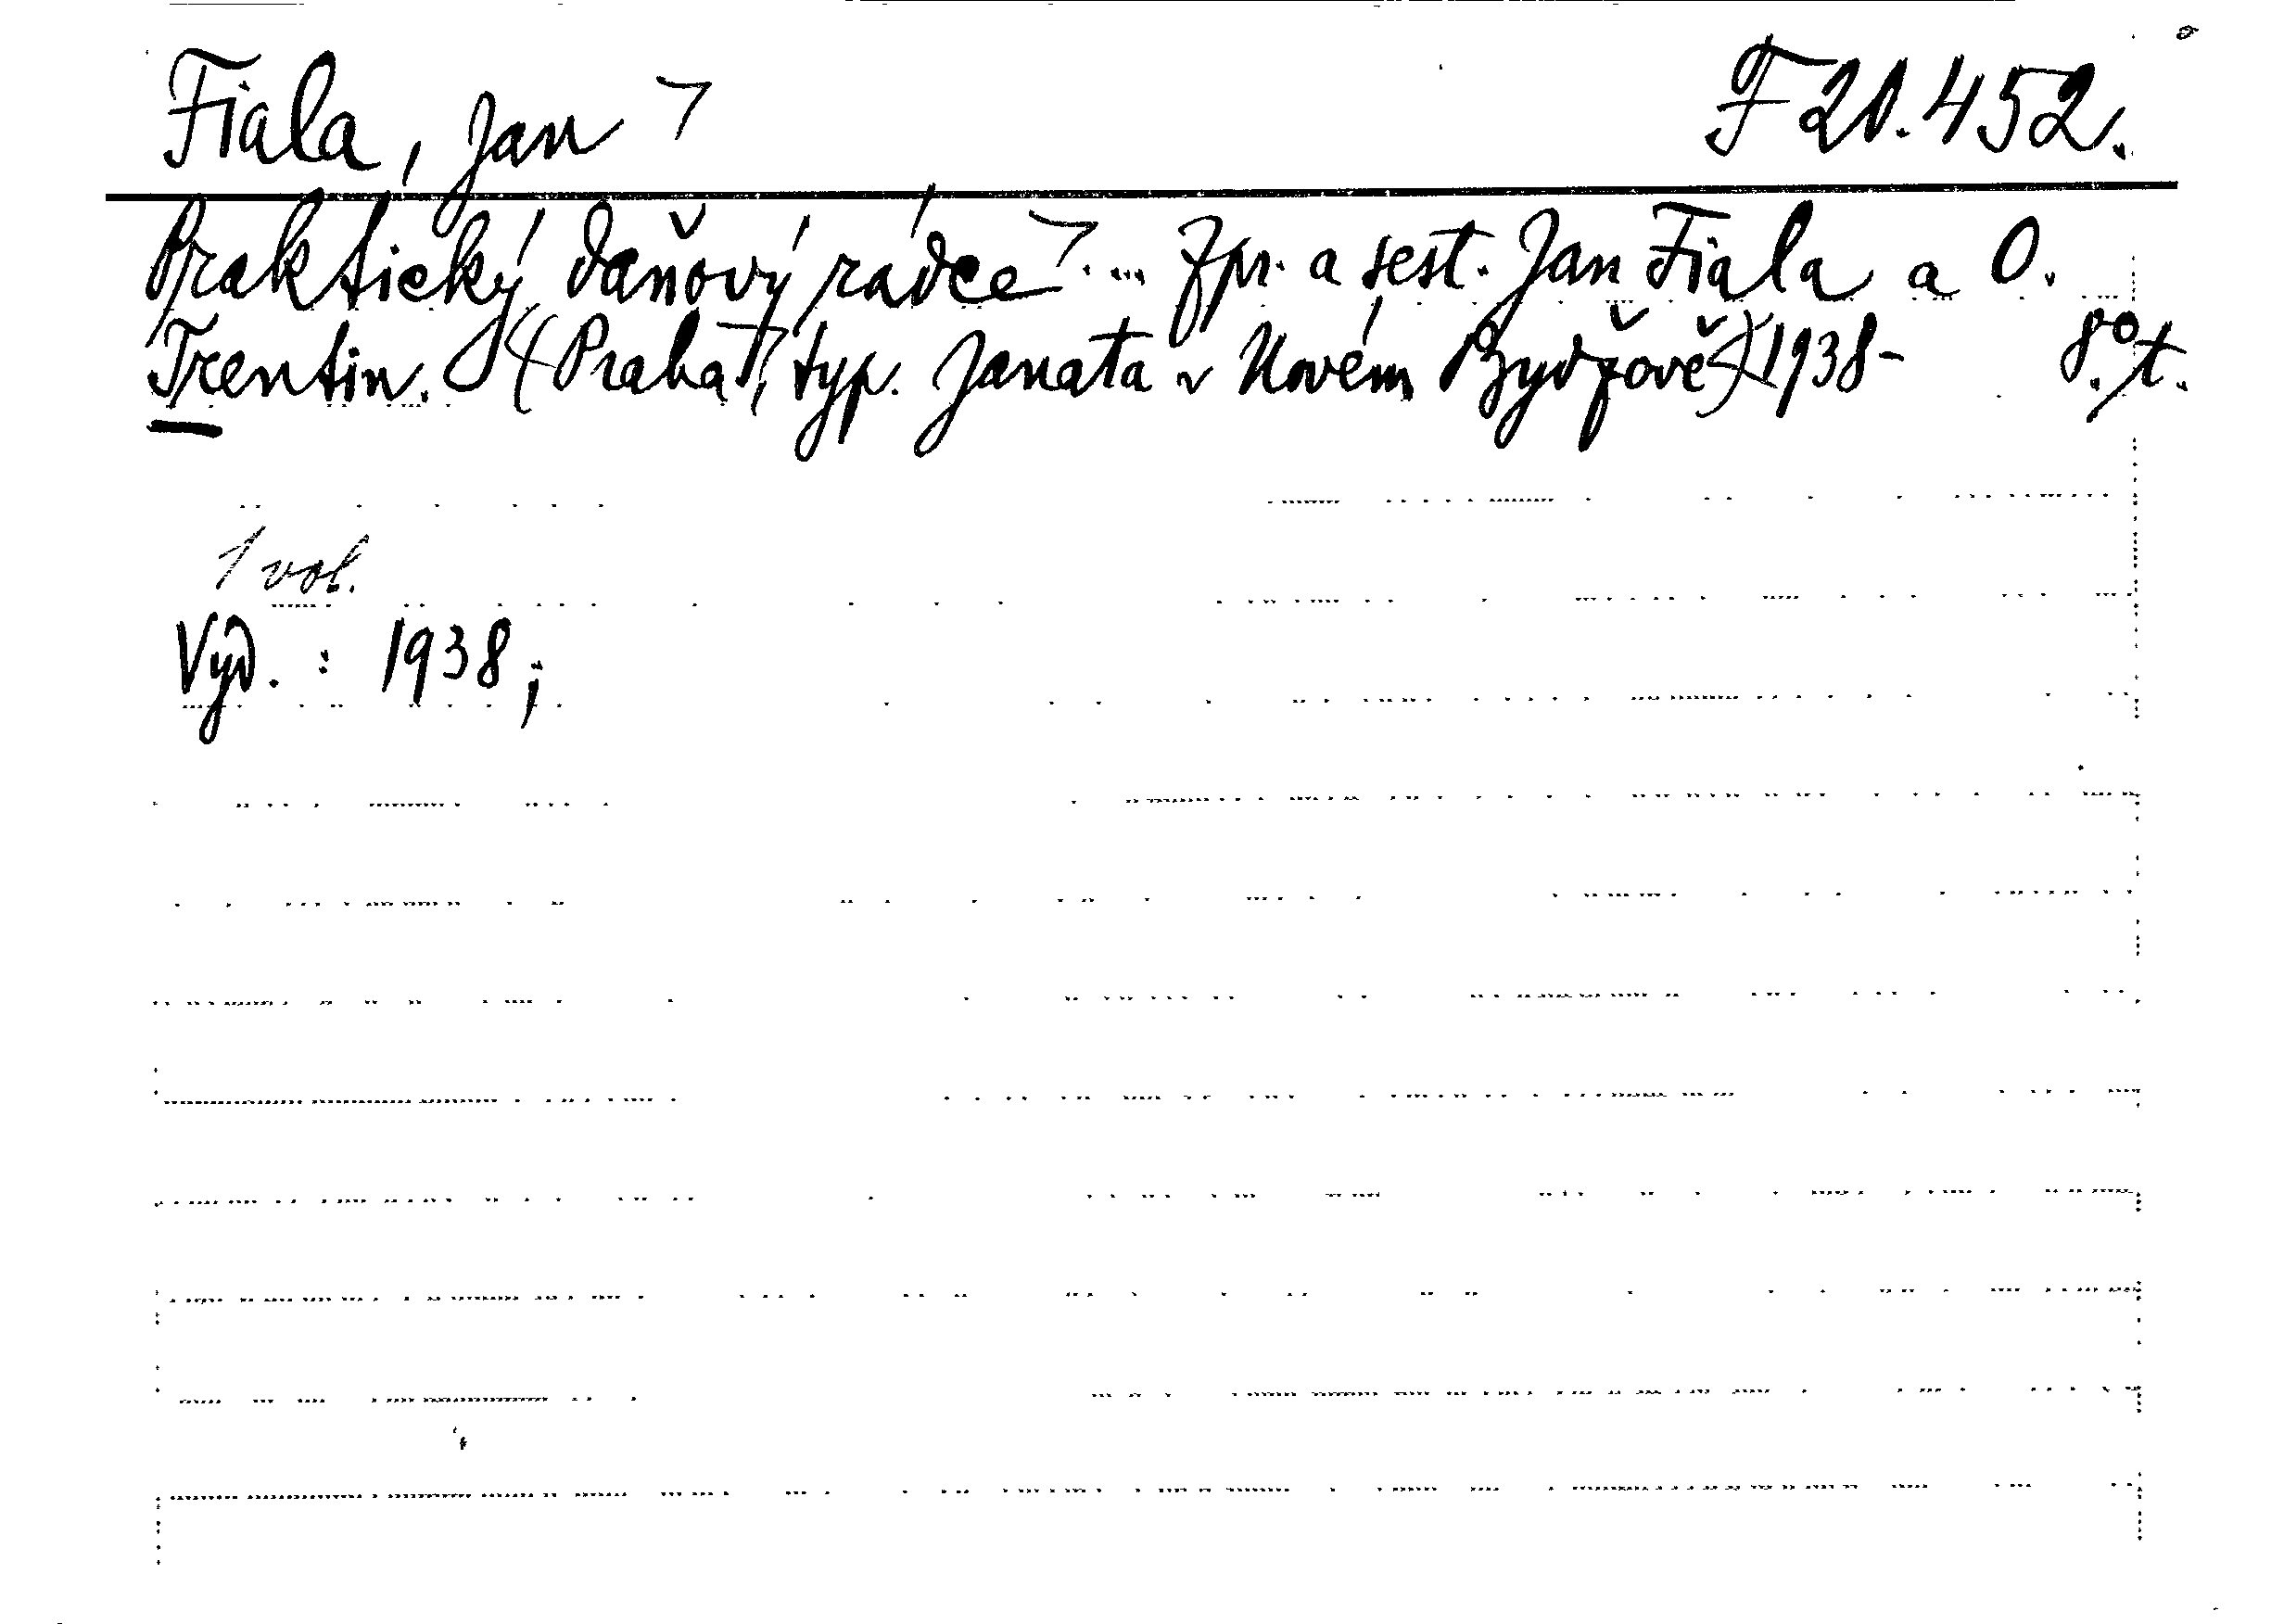 Fiala, Jan F 20.452.
Praktický daňový rádce ... Zpr. a sest. Jan Fiala a O.
Trentin. (Praha, typ. Janata v Novém Bydžově) 1938- 8°. t.
1 vol.
Vyd. : 1938 ;